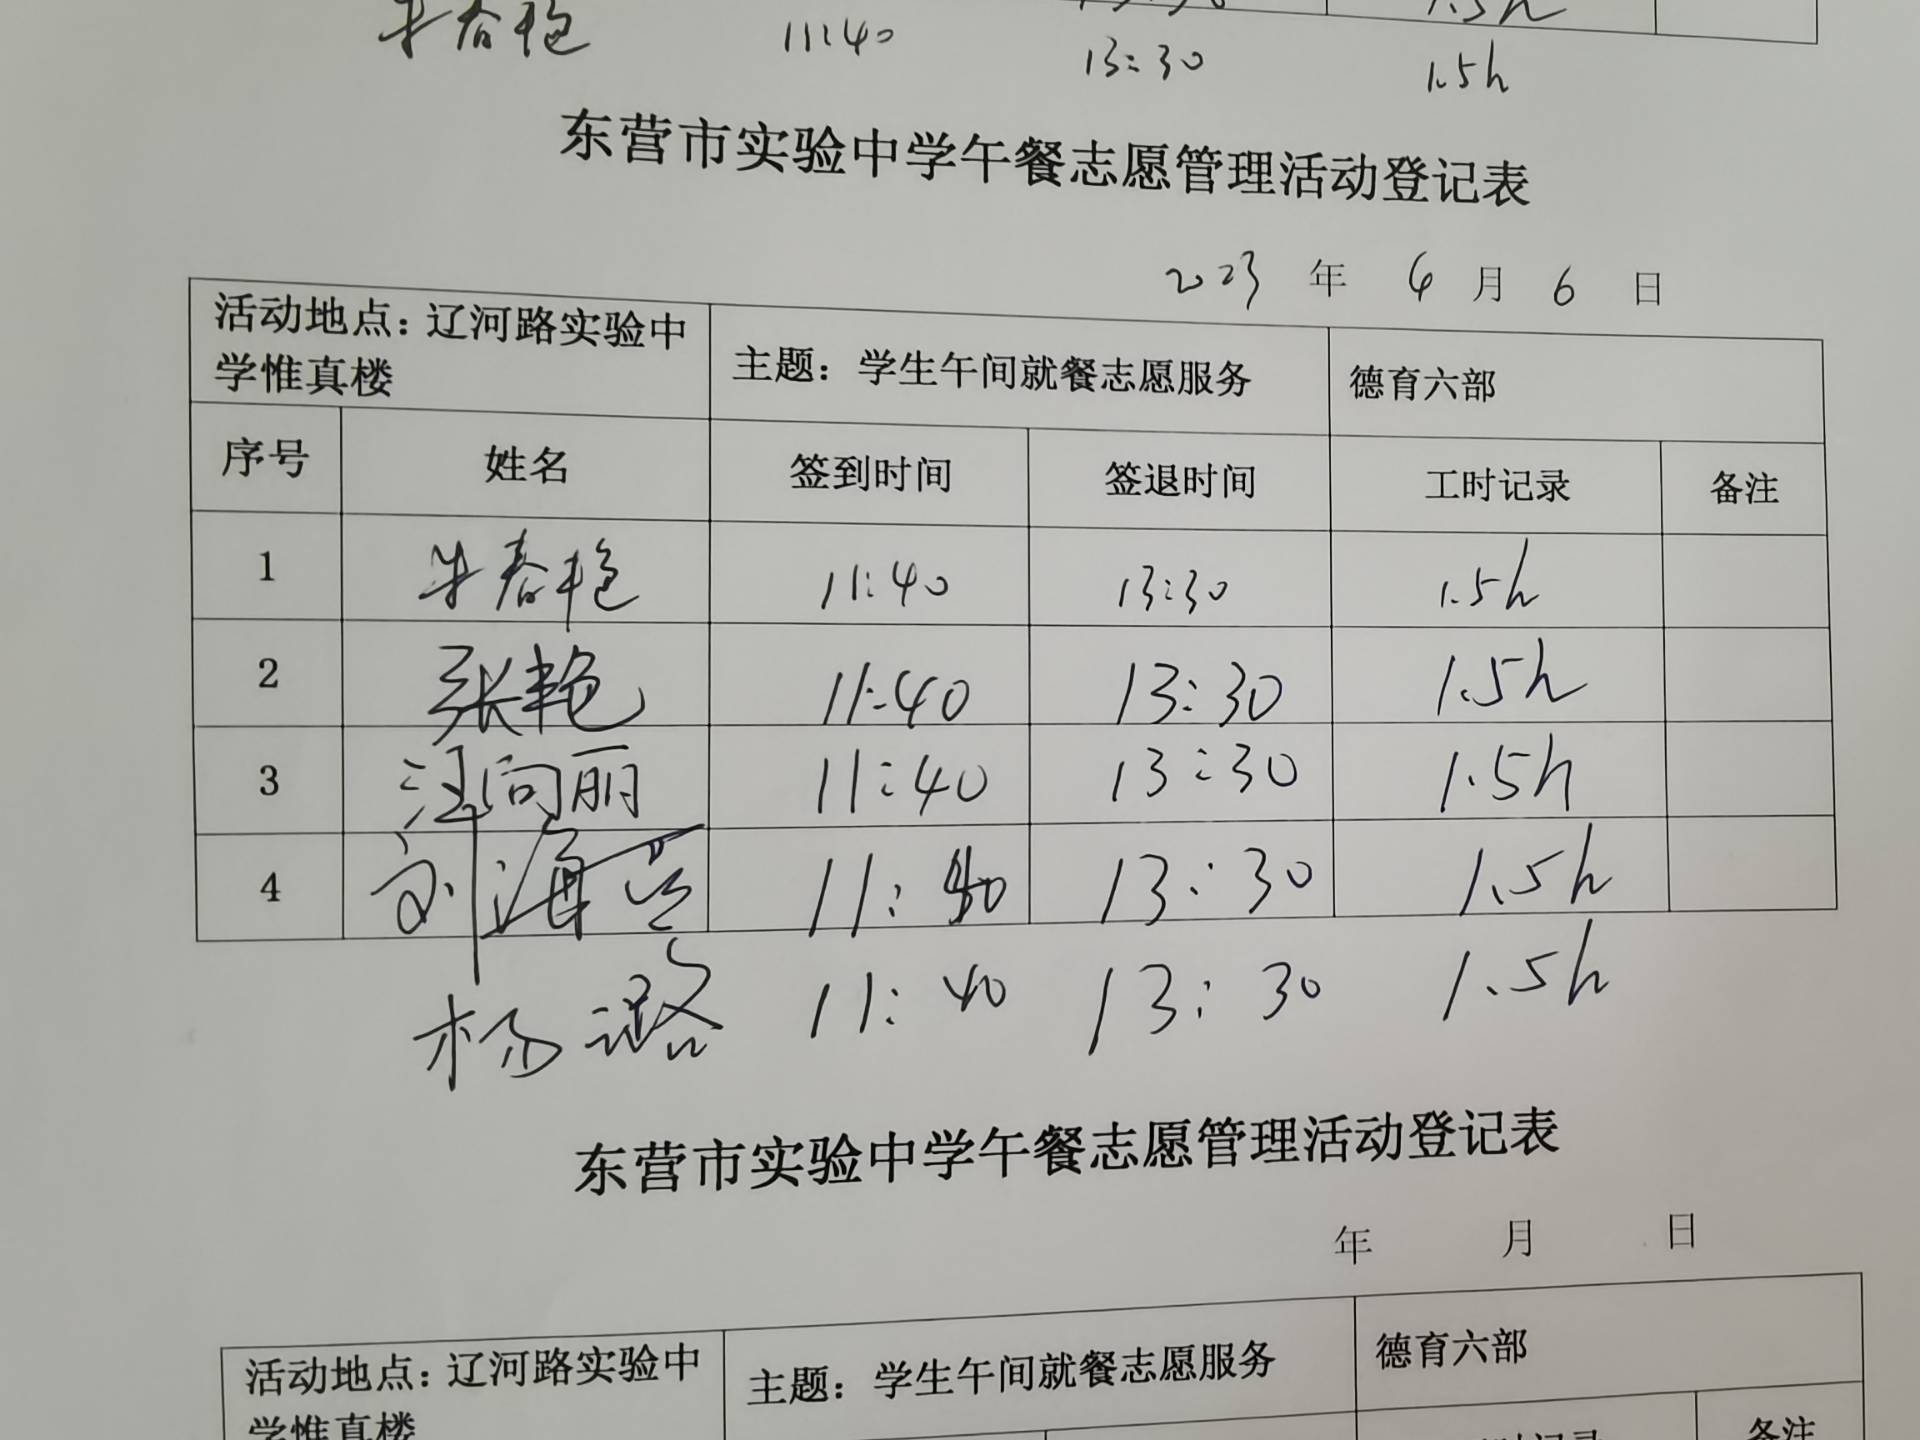 春艳 11:40 13:30 1.5h
东营市实验中学午餐志愿管理活动登记表
2023 年 6 月 6 日
活动地点：辽河路实验中 主题：学生午间就餐志愿服务 德育六部
学惟真楼
序号 姓名 签到时间 签退时间 工时记录 备注
1 春艳 11:40 13:30 1.5h
2 张艳 11:40 13:30 1.5h
3 汪向丽 11:40 13:30 1.5h
4 刘海 11:40 13:30 1.5h
杨璐 11:40 13:30 1.5h
东营市实验中学午餐志愿管理活动登记表
年 月 日
活动地点：辽河路实验中 主题：学生午间就餐志愿服务 德育六部
学惟真楼 时记录 备注